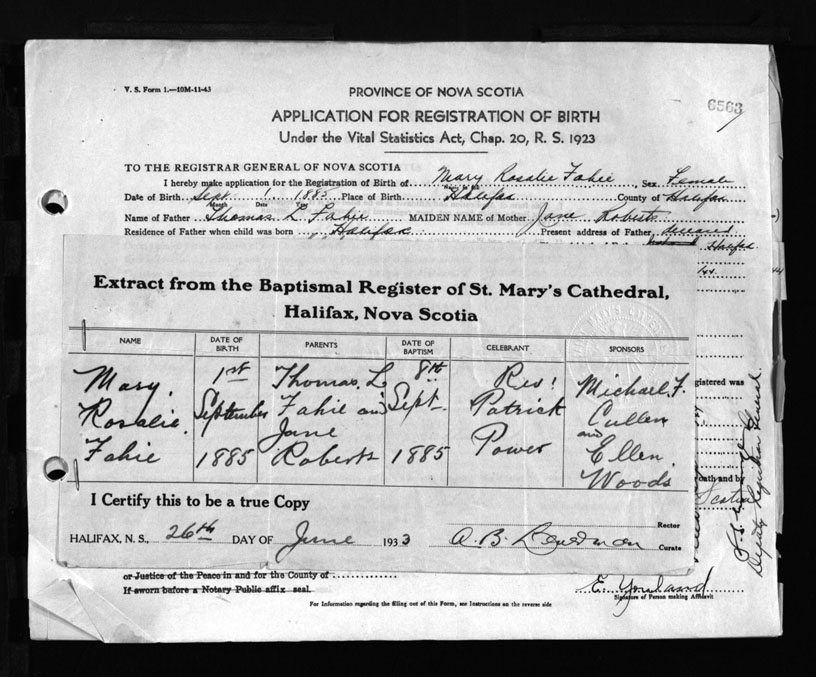 V. S. Form 1.—10M-11-43
PROVINCE OF NOVA SCOTIA
6563
APPLICATION FOR REGISTRATION OF BIRTH
Under the Vital Statistics Act, Chap. 20, R. S. 1923
TO THE REGISTRAR GENERAL OF NOVA SCOTIA
I hereby make application for the Registration of Birth of Mary Rosalie Fahie, Sex Female
Date of Birth Sept. 1 1885 Place of Birth Halifax County of Halifax
Month Date Year
Name of Father Thomas L. Fahie MAIDEN NAME of Mother Jane Roberts
Residence of Father when child was born Halifax Present address of Father, deceased
Halifax
Extract from the Baptismal Register of St. Mary's Cathedral,
Halifax, Nova Scotia
NAME DATE OF BIRTH PARENTS DATE OF BAPTISM CELEBRANT SPONSORS
Mary. 1st Thomas L 8th Rev. Michael F.
Rosalie. September Fahie and Sept. Patrick Cullen
Jane and
Fahie 1885 Roberts 1885 Power Ellen
Woods
gistered was
oath and by
Scotia
Deputy Registrar General
I Certify this to be a true Copy
HALIFAX, N. S., 26th DAY OF June 1933 A. B.
Rector
Curate
or Justice of the Peace in and for the County of
If sworn before a Notary Public affix seal.
E.
Signature of Person making Affidavit
For Information regarding the filling out of this Form, see Instructions on the reverse side